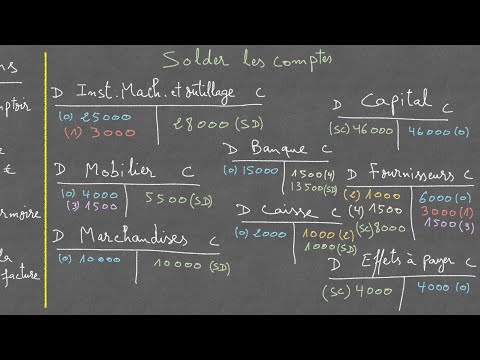 Solder les comptes
ns
mptoir
e
€
ermoire
la
facture
D Inst. Mach. et outillage C
(0) 25000
(1) 3000
28000 (SD)
D Mobilier C
(0) 4000
(3) 1500
5500 (SD)
D Marchandises C
(0) 10000
10000 (SD)
D Banque C
(0) 15000
1500 (4)
13500 (SD)
D Caisse C
(0) 2000
1000 (2)
1000 (SD)
D Capital C
(SC) 46000
46000 (0)
D Fournisseurs C
(2) 1000
6000 (0)
(4) 1500
3000 (1)
(SC) 8000
1500 (3)
D Effets à payer C
(SC) 4000
4000 (0)